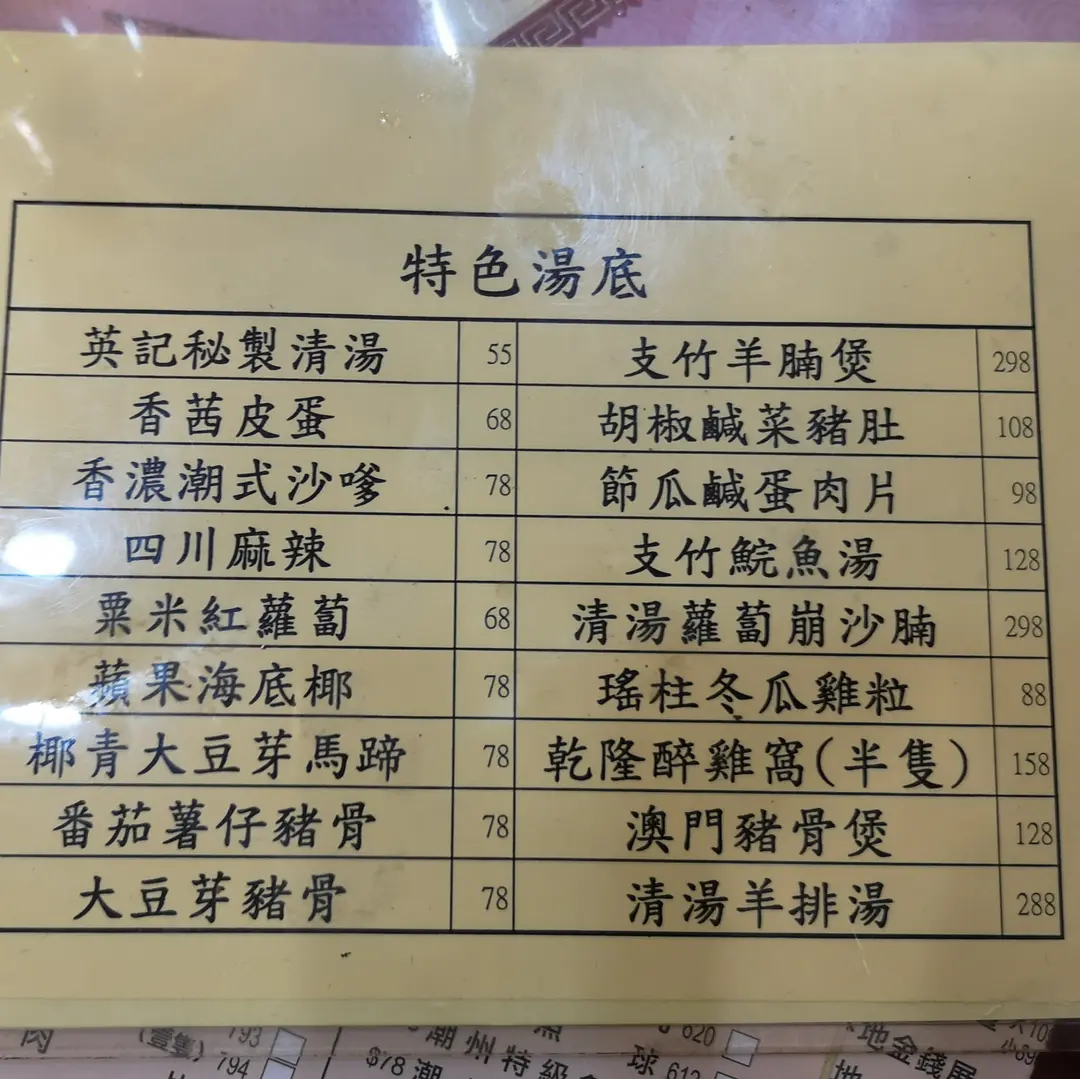 特色湯底
英記秘製清湯 55 支竹羊腩煲 298
香茜皮蛋 68 胡椒鹹菜豬肚 108
香濃潮式沙嗲 78 節瓜鹹蛋肉片 98
四川麻辣 78 支竹鯇魚湯 128
粟米紅蘿蔔 68 清湯蘿蔔崩沙腩 298
蘋果海底椰 78 瑤柱冬瓜雞粒 88
椰青大豆芽馬蹄 78 乾隆醉雞窩(半隻) 158
番茄薯仔豬骨 78 澳門豬骨煲 128
大豆芽豬骨 78 清湯羊排湯 288
肉 (壹隻) 793 620
794 $78 潮州特級 球 612 地金錢